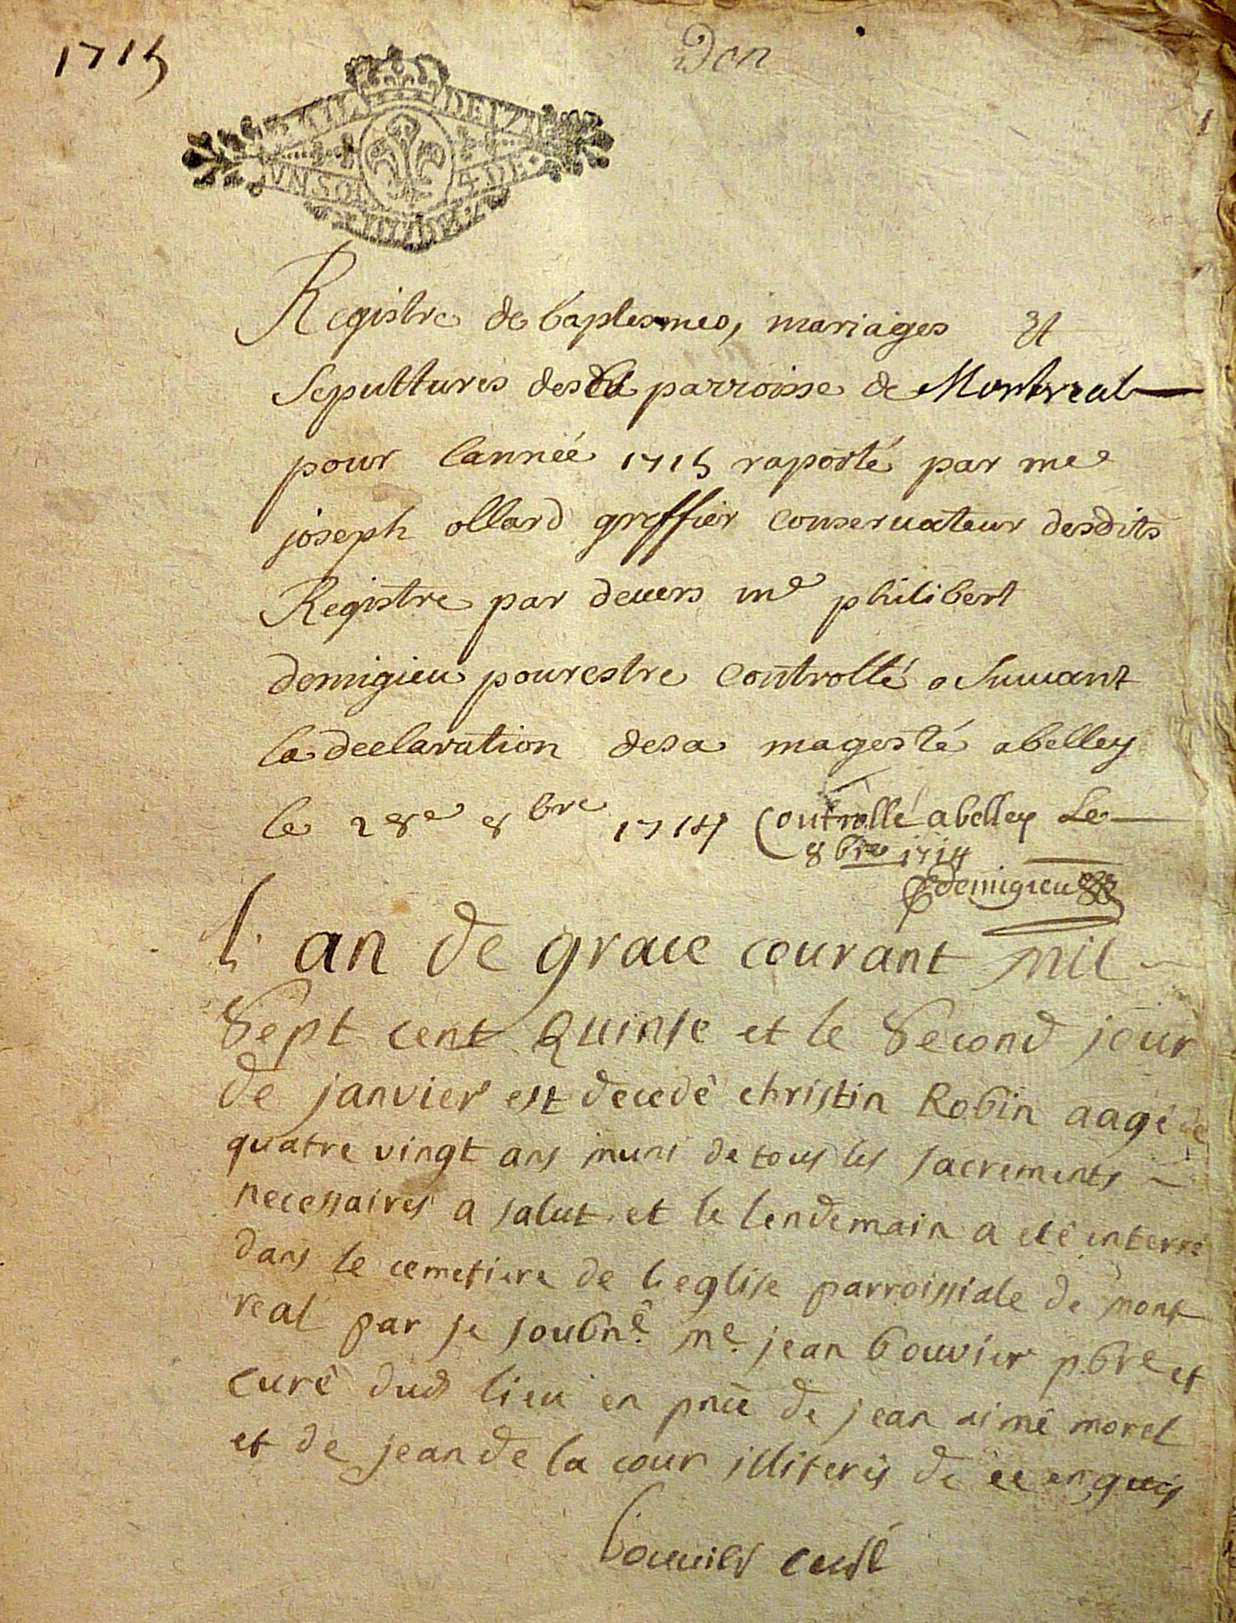 1715
Don
UN SOL 4 DE.
Registre de baptesmes, mariages et
Sepultures de la parroisse de Montreal
pour lannée 1715 raporté par me
joseph ollard greffier conseruateur desdits
Registre par deuers me philibert
demigieu pourestre controllé suiuant
la declaration desa magesté abelley
le 28e 8bre 1714 Controllé abelley Le
8bre 1714
demigieu
l'an de grace courant mil
Sept cent Quinse et le Second jour
de janvier est decedé christin Robin aagé de
quatre vingt ans muni de tous les sacrements
necessaires a salut et le lendemain a eté enterré
dans le cemetiere de l'eglise parroissiale de mont
real par je soubné me jean bouvier pbre et
curé dud lieu en pnce de jean aimé morel
et de jean de la cour illiterés de ce enquis
bouvier curé